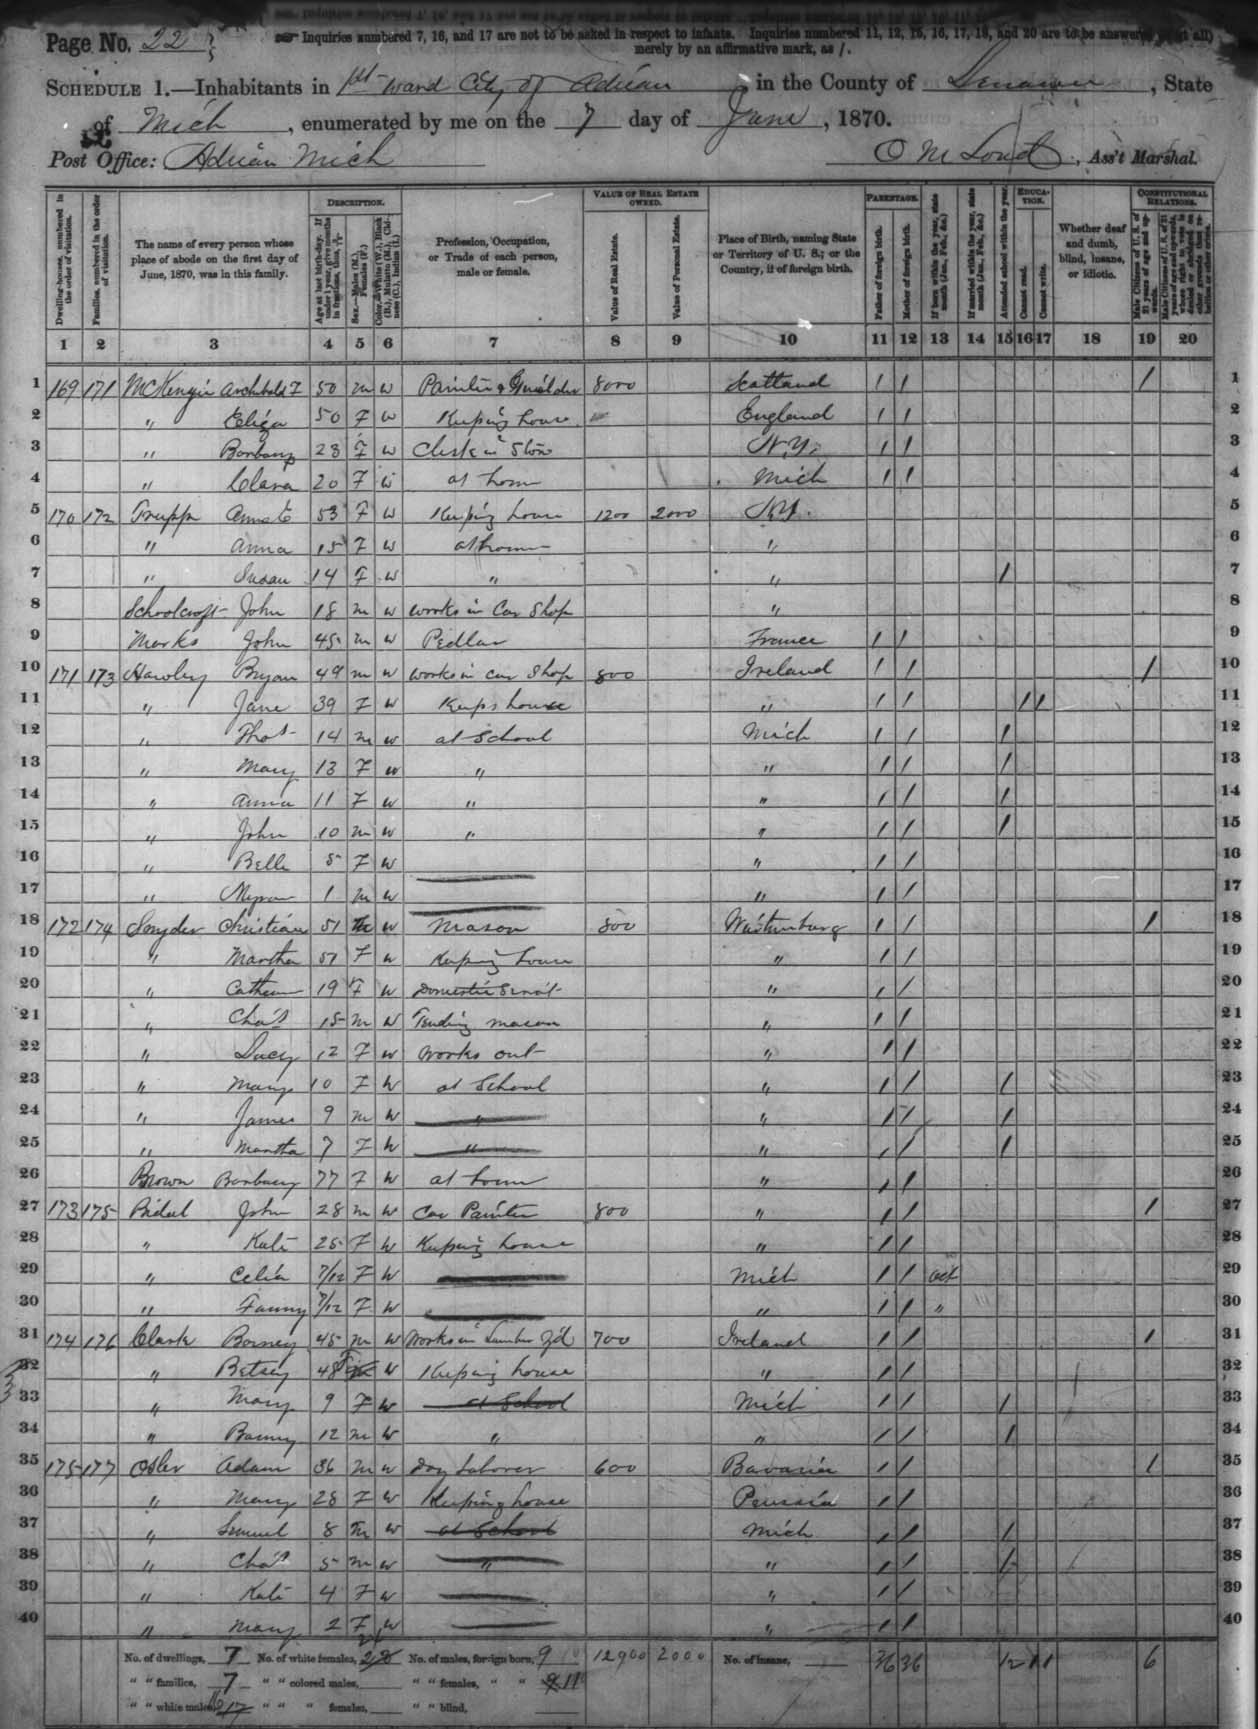 Page No. 22
Inquiries numbered 7, 16, and 17 are not to be asked in respect to infants. Inquiries numbered 11, 12, 15, 16, 17, 19, and 20 are to be answered (if at all)
merely by an affirmative mark, as /.
SCHEDULE 1.—Inhabitants in 1st Ward City of Adrian, in the County of Lenawee, State
of Mich, enumerated by me on the 7 day of June, 1870.
Post Office: Adrian Mich
Ass't Marshal.
Dwelling-houses, numbered in the order of visitation.
Families, numbered in the order of visitation.
The name of every person whose place of abode on the first day of June, 1870, was in this family.
DESCRIPTION.
Age at last birth-day. If under 1 year, give months in fractions, thus, 3/12
Sex.—Males (M.), Females (F.)
Color.—White (W.), Black (B.), Mulatto (M.), Chinese (C.), Indian (I.)
Profession, Occupation, or Trade of each person, male or female.
VALUE OF REAL ESTATE OWNED.
Value of Real Estate.
Value of Personal Estate.
Place of Birth, naming State or Territory of U. S.; or the Country, if of foreign birth.
PARENTAGE.
Father of foreign birth.
Mother of foreign birth.
If born within the year, state month (Jan., Feb., &c.)
If married within the year, state month (Jan., Feb., &c.)
Attended school within the year.
EDUCATION.
Cannot read.
Cannot write.
Whether deaf and dumb, blind, insane, or idiotic.
CONSTITUTIONAL RELATIONS.
Male Citizens of U. S. of 21 years of age and upwards.
Male Citizens of U. S. of 21 years of age and upwards, whose right to vote is denied or abridged on other grounds than rebellion or other crime.
1 2 3 4 5 6 7 8 9 10 11 12 13 14 15 16 17 18 19 20
1 169 171 McKenzie Archibald F 50 m w Painter & 8000 Scotland / / / 1
2 " Eliza 50 F w Keeping house England / / 2
3 " Barbary 23 F w Clerk in Store N.Y. / / 3
4 " Clara 20 F w at home Mich / / 4
5 170 172 Ann E 53 F w Keeping house 1200 2000 N.Y. 5
6 " Anna 15 F w at home " 6
7 " Susan 14 F w " " / 7
8 Schoolcraft John 18 m w works in Car Shop " 8
9 Marks John 45 m w Pedlar France / / 9
10 171 173 Hawley Bryan 49 m w works in car Shop 800 Ireland / / / 10
11 " Jane 39 F w Keeps house " / / / / 11
12 " Thos 14 m w at School Mich / / / 12
13 " Mary 13 F w " " / / / 13
14 " Anna 11 F w " " / / / 14
15 " John 10 m w " " / / / 15
16 " Belle 5 F w " / / 16
17 " 1 m w " / / 17
18 172 174 Snyder Christian 51 m w Mason 800 Wirtemburg / / / 18
19 " Martha 51 F w Keeping house " / / 19
20 " 19 F w Domestic Servt " / / 20
21 " Chas 15 m w Tending mason " / / 21
22 " Lucy 12 F w Works out " / / 22
23 " Mary 10 F W at School " / / / 23
24 " James 9 m W " " / / / 24
25 " Martha 7 F W " " / / / 25
26 Brown Barbary 77 F W at home " / / 26
27 173 175 John 28 m W Car Painter 800 " / / / 27
28 " Kate 25 F W Keeping house " / / 28
29 " Celia 7/12 F W Mich / / Oct 29
30 " Fanny 7/12 F W " / / " 30
31 174 176 Clark Barney 45 m W Works in Lumber Yd 700 Ireland / / / 31
32 " Betsey 48 F W Keeping house " / / 32
33 " Mary 9 F W at School Mich / / / 33
34 " Barney 12 m W " " / / / 34
35 175 177 Osler Adam 36 m w Day Laborer 600 Bavaria / / / 35
36 " Mary 28 F W Keeping house Prussia / / 36
37 " Samuel 8 m W at School Mich / / / 37
38 " Chas 5 m w " " / / / 38
39 " Kate 4 F w " / / 39
40 " Mary 2 F W " / / 40
No. of dwellings, 7 No. of white females, No. of males, foreign born, 9 12900 2000 No. of insane, 36 36 12 1 1 6
" " families, 7 " " colored males, " " females, " " 11
" " white males, " " " females, " " blind,